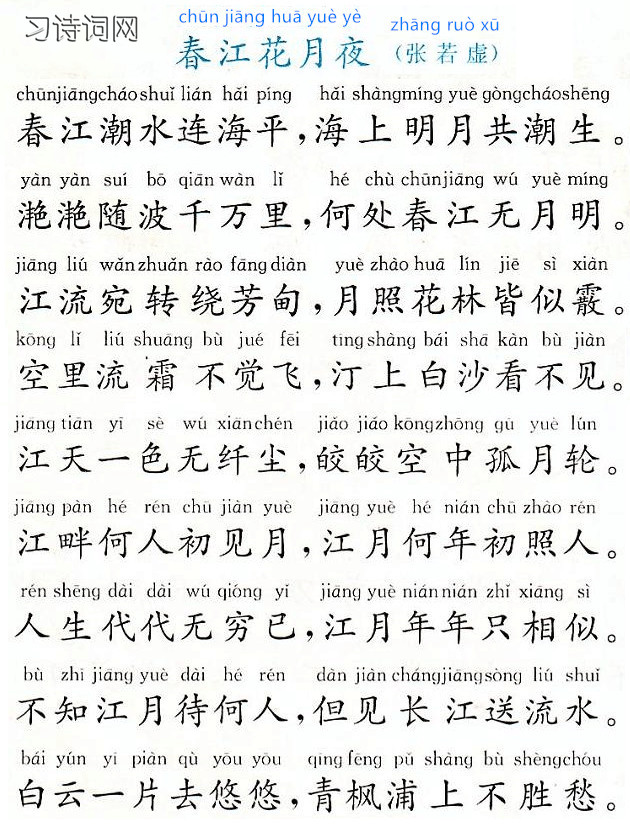 习诗词网
chūn jiāng huā yuè yè zhāng ruò xū
春江花月夜（张若虚）
chūnjiāngcháoshuǐ lián hǎi píng hǎi shàngmíng yuè gòngcháoshēng
春江潮水连海平，海上明月共潮生。
yàn yàn suí bō qiān wàn lǐ hé chù chūnjiāng wú yuè míng
滟滟随波千万里，何处春江无月明。
jiāng liú wǎnzhuǎn rào fāng diàn yuè zhào huā lín jiē sì xiàn
江流宛转绕芳甸，月照花林皆似霰。
kōng lǐ liú shuāng bù jué fēi tīng shàng bái shā kàn bù jiàn
空里流霜不觉飞，汀上白沙看不见。
jiāng tiān yī sè wú xiānchén jiǎo jiáo kōngzhōng gū yuè lún
江天一色无纤尘，皎皎空中孤月轮。
jiāng pàn hé rén chū jiàn yuè jiāng yuè hé nián chū zhào rén
江畔何人初见月，江月何年初照人。
rén shēng dài dài wú qióng yǐ jiāng yuè nián nián zhǐ xiāng sì
人生代代无穷已，江月年年只相似。
bù zhī jiāng yuè dài hé rén dàn jiàn chángjiāngsòng liú shuǐ
不知江月待何人，但见长江送流水。
bái yún yī piàn qù yōu yōu qīng fēng pǔ shàng bù shèngchóu
白云一片去悠悠，青枫浦上不胜愁。